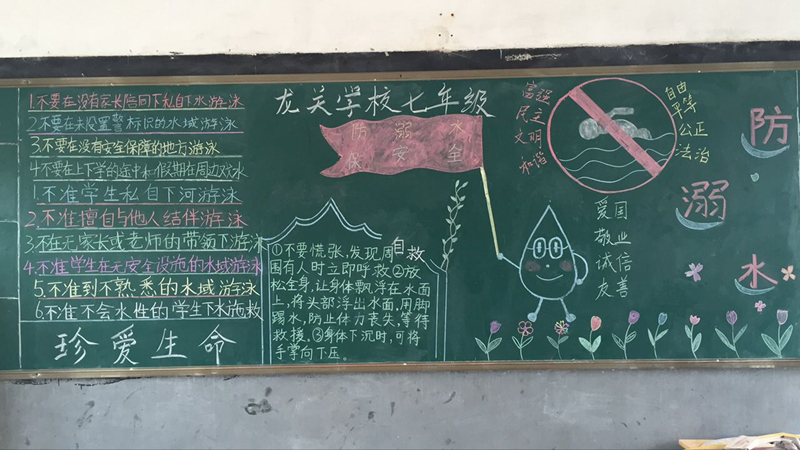 1.不要在没有家长陪同下私自下水游泳
2.不要在未设置警标识的水域游泳
3.不要在没有安全保障的地方游泳
4.不要在上下学的途中和假期在周边戏水
1.不准学生私自下河游泳
2.不准擅自与他人结伴游泳
3.不在无家长或老师的带领下游泳
4.不准学生在无安全设施的水域游泳
5.不准到不熟悉的水域游泳
6.不准不会水性的学生下水施救
珍爱生命
龙关学校七年级
防溺水
保安全
自救
①不要慌张,发现周
围有人时立即呼救②放
松全身,让身体飘浮在水面
上,将头部浮出水面,用脚
踢水,防止体力丧失,等待
救援。③身体下沉时,可将
手掌向下压。
富强
民主
文明
和谐
自由
平等
公正
法治
爱国
敬业
诚信
友善
防
溺
水